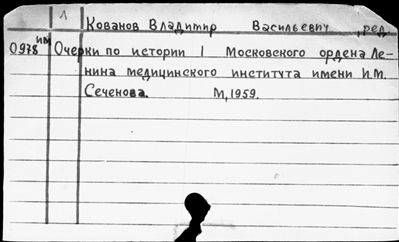 Л
Кованов Владимир Васильевич, ред.
им
0978 Очерки по истории I Московского ордена Ле-
нина медицинского института имени И.М.
Сеченова. М, 1959.